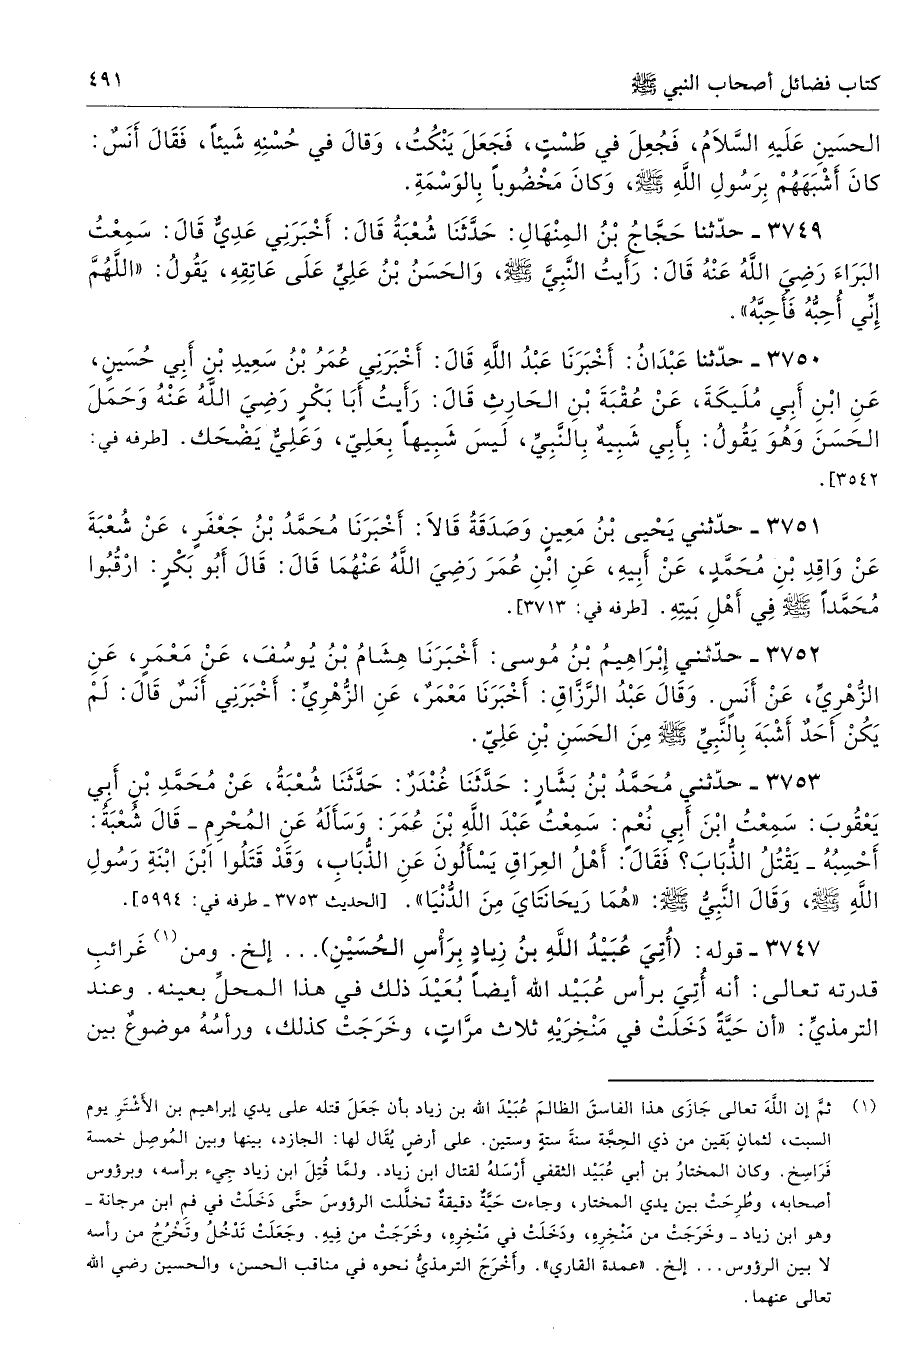 كتاب فضائل أصحاب النبي ﷺ ٤٩١
الحسَينِ عَلَيهِ السَّلاَمُ، فَجُعِلَ في طَسْتٍ، فَجَعَلَ يَنْكُتُ، وَقالَ في حُسْنِهِ شَيئاً، فَقَالَ أَنَسٌ:
كانَ أَشْبَهَهُمْ بِرَسُولِ اللَّهِ ﷺ، وَكانَ مَخْضُوباً بِالوَسْمَةِ.
٣٧٤٩ ـ حدّثنا حَجَّاجُ بْنُ المِنْهَالِ: حَدَّثَنَا شُعْبَةُ قَالَ: أَخْبَرَنِي عَدِيٌّ قَالَ: سَمِعْتُ
البَرَاءَ رَضِيَ اللَّهُ عَنْهُ قَالَ: رَأَيتُ النَّبِيَّ ﷺ، وَالحَسَنُ بْنُ عَلِيٍّ عَلَى عَاتِقِهِ، يَقُولُ: «اللَّهُمَّ
إِنِّي أُحِبُّهُ فَأَحِبَّهُ».
٣٧٥٠ ـ حدّثنا عَبْدَانُ: أَخْبَرَنَا عَبْدُ اللَّهِ قَالَ: أَخْبَرَنِي عُمَرُ بْنُ سَعِيدِ بْنِ أَبِي حُسَينٍ،
عَنِ ابْنِ أَبِي مُلَيكَةَ، عَنْ عُقْبَةَ بْنِ الحَارِثِ قَالَ: رَأَيتُ أَبَا بَكْرٍ رَضِيَ اللَّهُ عَنْهُ وَحَمَلَ
الحَسَنَ وَهُوَ يَقُولُ: بِأَبِي شَبِيهٌ بِالنَّبِيِّ، لَيسَ شَبِيهاً بِعَلِيّ، وَعَلِيٌّ يَضْحَك. [طرفه في:
٣٥٤٢].
٣٧٥١ ـ حدّثني يَحْيى بْنُ مَعِينٍ وَصَدَقَةُ قَالاَ: أَخْبَرَنَا مُحَمَّدُ بْنُ جَعْفَرٍ، عَنْ شُعْبَةَ
عَنْ وَاقِدِ بْنِ مُحَمَّدٍ، عَنْ أَبِيهِ، عَنِ ابْنِ عُمَرَ رَضِيَ اللَّهُ عَنْهُمَا قَالَ: قَالَ أَبُو بَكْرٍ: ارْقُبُوا
مُحَمَّداً ﷺ فِي أَهْلِ بَيتِهِ. [طرفه في: ٣٧١٣].
٣٧٥٢ ـ حدّثني إِبْرَاهِيمُ بْنُ مُوسى: أَخْبَرَنَا هِشَامُ بْنُ يُوسُفَ، عَنْ مَعْمَرٍ، عَنِ
الزُّهْرِيِّ، عَنْ أَنَسٍ. وَقَالَ عَبْدُ الرَّزَّاقِ: أَخْبَرَنَا مَعْمَرٌ، عَنِ الزُّهْرِيِّ: أَخْبَرَنِي أَنَسٌ قَالَ: لَمْ
يَكُنْ أَحَدٌ أَشْبَهَ بِالنَّبِيِّ ﷺ مِنَ الحَسَنِ بْنِ عَلِيّ.
٣٧٥٣ ـ حدّثني مُحَمَّدُ بْنُ بَشَّارٍ: حَدَّثَنَا غُنْدَرٌ: حَدَّثَنَا شُعْبَةُ، عَنْ مُحَمَّدِ بْنِ أَبِي
يَعْقُوبَ: سَمِعْتُ ابْنَ أَبِي نُعْمٍ: سَمِعْتُ عَبْدَ اللَّهِ بْنَ عُمَرَ: وَسَأَلَهُ عَنِ المُحْرِمِ ـ قَالَ شُعْبَةُ:
أَحْسِبُهُ ـ يَقْتُلُ الذُّبَابَ؟ فَقَالَ: أَهْلُ العِرَاقِ يَسْأَلُونَ عَنِ الذُّبَابِ، وَقَدْ قَتَلُوا ابْنَ ابْنَةِ رَسُولِ
اللَّهِ ﷺ، وَقَالَ النَّبِيُّ ﷺ: «هُمَا رَيحَانَتَايَ مِنَ الدُّنْيَا». [الحديث ٣٧٥٣ ـ طرفه في: ٥٩٩٤].
٣٧٤٧ ـ قوله: (أُتِيَ عُبَيْدُ اللَّهِ بنُ زِيادٍ بِرَأْسِ الحُسَيْنِ)... إلخ. ومن(١) غَرائبِ
قدرته تعالى: أنه أُتِيَ برأس عُبَيْد الله أيضاً بُعَيْدَ ذلك في هذا المحلِّ بعينه. وعند
الترمذيِّ: «أن حَيَّةً دَخَلَتْ في مَنْخِرَيْهِ ثلاث مرَّاتٍ، وخَرَجَتْ كذلك، ورأسُهُ موضوعٌ بين
(١) ثمَّ إن اللَّهَ تعالى جَازَى هذا الفاسقَ الظالمَ عُبَيْدَ الله بن زياد بأن جَعَلَ قتله على يدي إبراهيم بن الأَشْتَرِ يوم
السبت، لثمانٍ بَقين من ذي الحِجَّة سنةَ ستةٍ وستين. على أرضٍ يُقَال لها: الجازد، بينها وبين المُوصِل خمسة
فَرَاسِخ. وكان المختارُ بن أبي عُبَيْد الثقفي أَرْسَلَهُ لقتال ابن زياد. ولمَّا قُتِلَ ابن زياد جِيء برأسه، وبرؤوس
أصحابه، وطُرِحَتْ بين يدي المختار، وجاءت حَيَّةٌ دقيقةٌ تخلَّلت الرؤوسَ حتَّى دَخَلَتْ في فم ابن مرجانة ـ
وهو ابن زياد ـ وخَرَجَتْ من مَنْخِرِهِ، ودَخَلَتْ في مَنْخِرِهِ، وخَرَجَتْ من فِيهِ. وجَعَلَتْ تَدْخُلُ وتَخْرُجُ من رأسه
لا بين الرؤوس... إلخ. «عمدة القاري». وأَخْرَجَ الترمذيُّ نحوه في مناقب الحسن، والحسين رضي الله
تعالى عنهما.